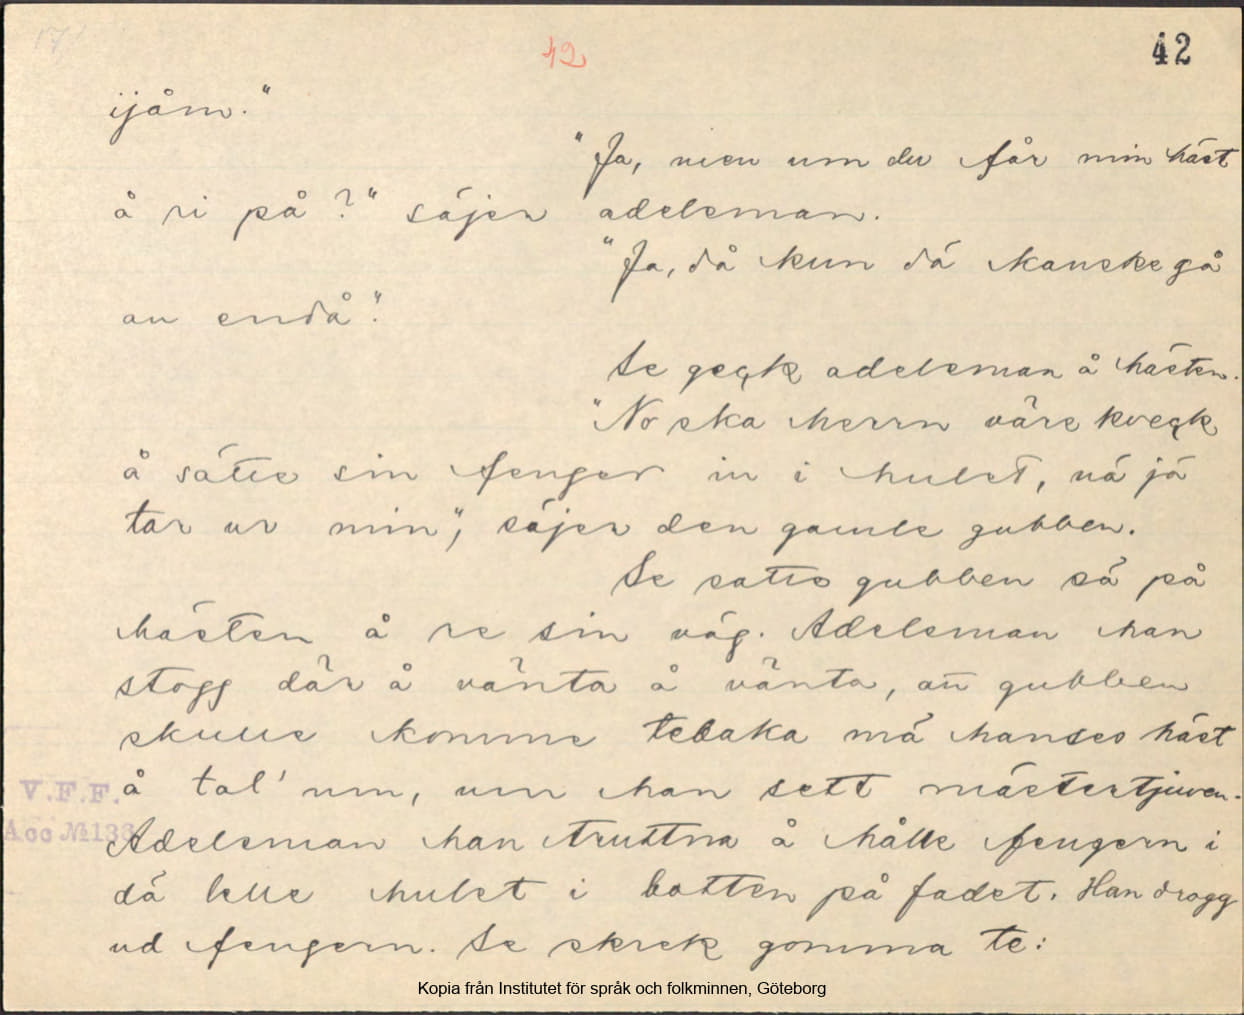 42 42
ijåm."
"Ja, men um du får min häst
å ri på?" säjer adelsman.
"Ja, då kun dä kanske gå
an endå".
Se geck adelsman å hästen.
"No ska herrn väre kveck
å sätte sin fenger in i hulet, nä jä
tar ur min", säjer den gamle gubben.
Se satte gubben sä på
hästen å re sin väg. Adelsman han
stogg där å vänta å vänta, att gubben
skulle komme tebaka mä hanses häst
å tal' um, um han sett mästertjuven.
V.F.F.
Acc № 138
Adelsman han truttna å hålle fengern i
dä lelle hulet i botten på fadet. Han drogg
ud fengern. Se skrek gomma te:
Kopia från Institutet för språk och folkminnen, Göteborg